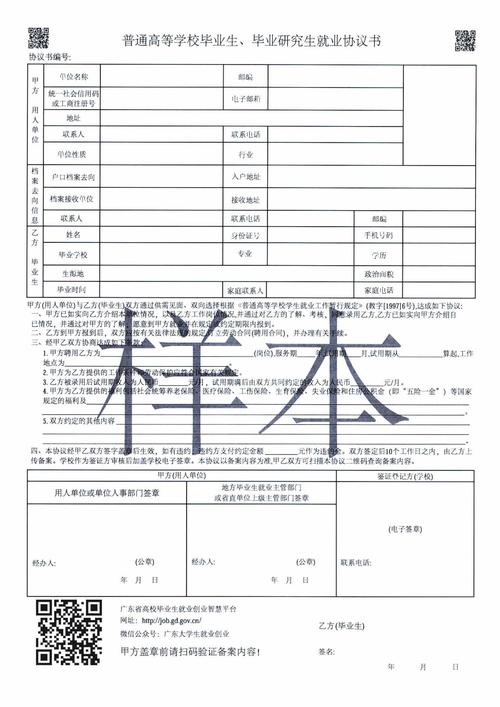 普通高等学校毕业生、毕业研究生就业协议书
协议书编号:
甲方 用人单位
单位名称 邮编
统一社会信用码或工商注册号 电子邮箱
地址
联系人 联系电话
单位性质 行业
档案去向信息
户口档案去向 入户地址
档案接收单位 接收地址
联系人 联系电话 邮编
乙方 毕业生
姓名 身份证号 手机号码
毕业学校 专业 学历
生源地 政治面貌
毕业时间 家庭联系人 家庭电话
甲方(用人单位)与乙方(毕业生)双方通过供需见面、双向选择根据《普通高等学校学生就业工作暂行规定》(教字[1997]6号),达成如下协议:
一、甲方已如实向乙方介绍本单位情况,以及乙方工作岗位情况,并通过对乙方的了解、考核,同意录用乙方,乙方已如实向甲方介绍自
己情况,并通过对甲方的了解,愿意到甲方就业并在规定的定期限内报到。
二、乙方到甲方报到后,双方应按有关法律法规的规定订立劳动合同(聘用合同),并办理有关手续。
三、经甲乙双方协商达成如下条款:
1.甲方聘用乙方为 (岗位),服务期 年,试用期 月,试用期从 算起,工作
地点为
2.甲方为乙方提供的工作条件和劳动保护应符合国家有关规定。
3.乙方被录用后试用期收入为人民币 元/月,试用期满后由双方共同约定的收入为人民币 元/月。
4.甲方为乙方提供的福利包括社会统筹养老保险、医疗保险、工伤保险、生育保险、失业保险和住房公积金(即“五险一金”)等国家
规定的福利及
5.双方约定的其他内容
四、本协议经甲乙双方签字盖章后生效,如有违约,违约方支付约定金额 元作为违约金。双方签定后10个工作日之内,由乙方上
传备案。学校作为鉴证方审核后加盖学校电子签章。本协议以备案内容为准,甲乙双方可扫描本协议二维码查询备案内容。
样本
甲方(用人单位) 鉴证登记方(学校)
用人单位或单位人事部门签章 地方毕业生就业主管部门
或省直单位上级主管部门签章
(电子签章)
经办人: (公章) 经办人: (公章) 联系电话:
年 月 日 年 月 日
广东省高校毕业生就业创业智慧平台
网址:http://job.gd.gov.cn/
微信公众号:广东大学生就业创业
甲方盖章前请扫码验证备案内容!
乙方(毕业生)
签名:
年 月 日